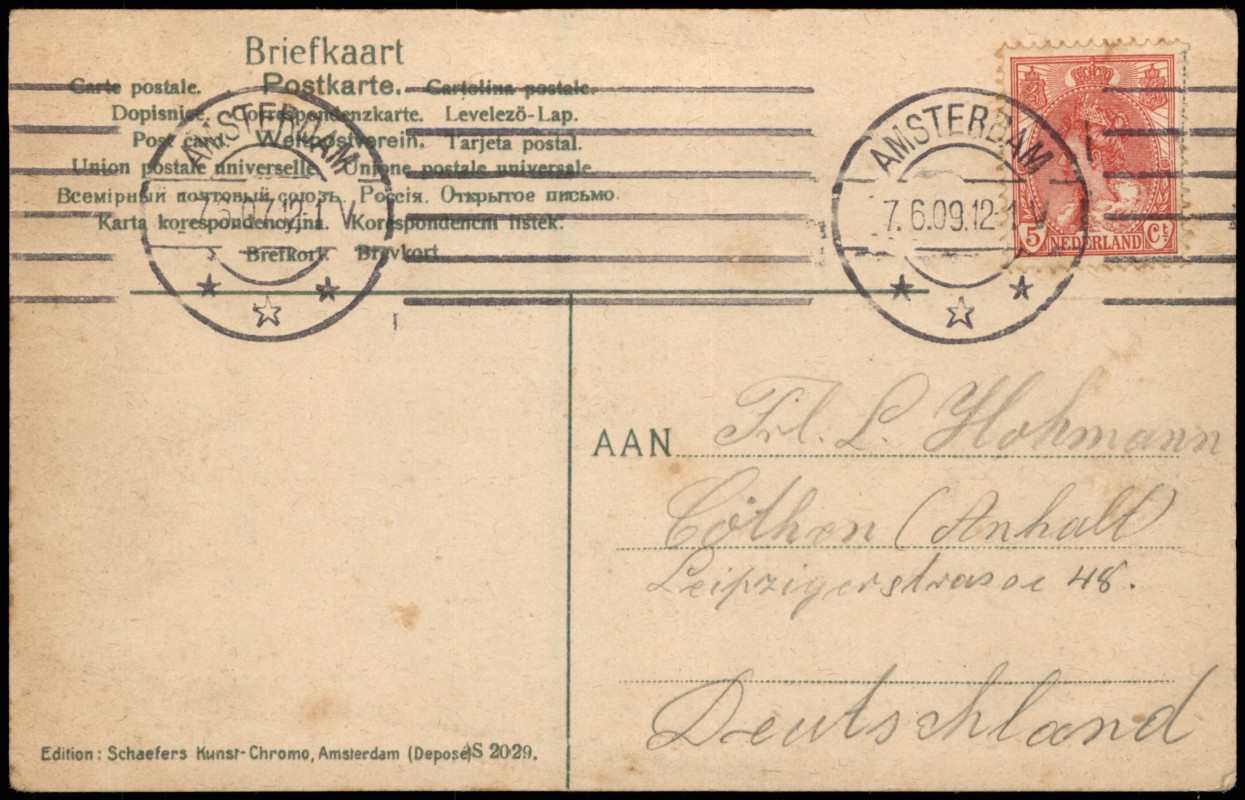 Briefkaart
Carte postale. Postkarte. Cartolina postale.
Dopisnice. Correspondenzkarte. Levelező-Lap.
Post card. Weltpostverein. Tarjeta postal.
Union postale universelle. Unione postale universale.
Всемірный почтовый союзъ. Россія. Открытое письмо.
Karta korespondencyjna. Korespondencni listek.
Brefkort. Brevkort
AMSTERDAM
AMSTERDAM
7.6.09.12-1 V
5 NEDERLAND Ct
AAN Frl. L. Hohmann
Cöthen (Anhalt)
Leipzigerstrasse 48.
Deutschland
Edition: Schaefers Kunst-Chromo, Amsterdam (Deposé) S 2029.